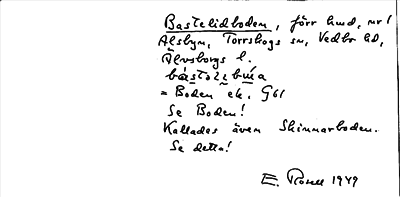 Bastelidboden, förr hmd, nr 1
Alsbyn, Torrskogs sn, Vedbo hd,
Älvsborgs l.
= Boden ek. G61
Se Boden!
Kallades även Skinnarboden.
Se detta!
E. Rosell 1949